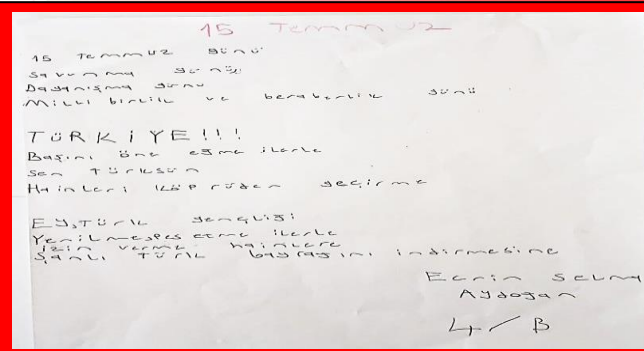 15 Temmuz
15 Temmuz günü
Savunma günü
Dayanışma günü
Milli birlik ve beraberlik günü
TÜRKİYE!!!
Başını öne eğme ilerle
Sen Türksün
Hainleri köprüden geçirme
Ey, Türk gençliği
Yenilme pes etme ilerle
İzin verme hainlere
Şanlı Türk bayrağını indirmesine
Ecrin Selma
Aydoğan
4/B